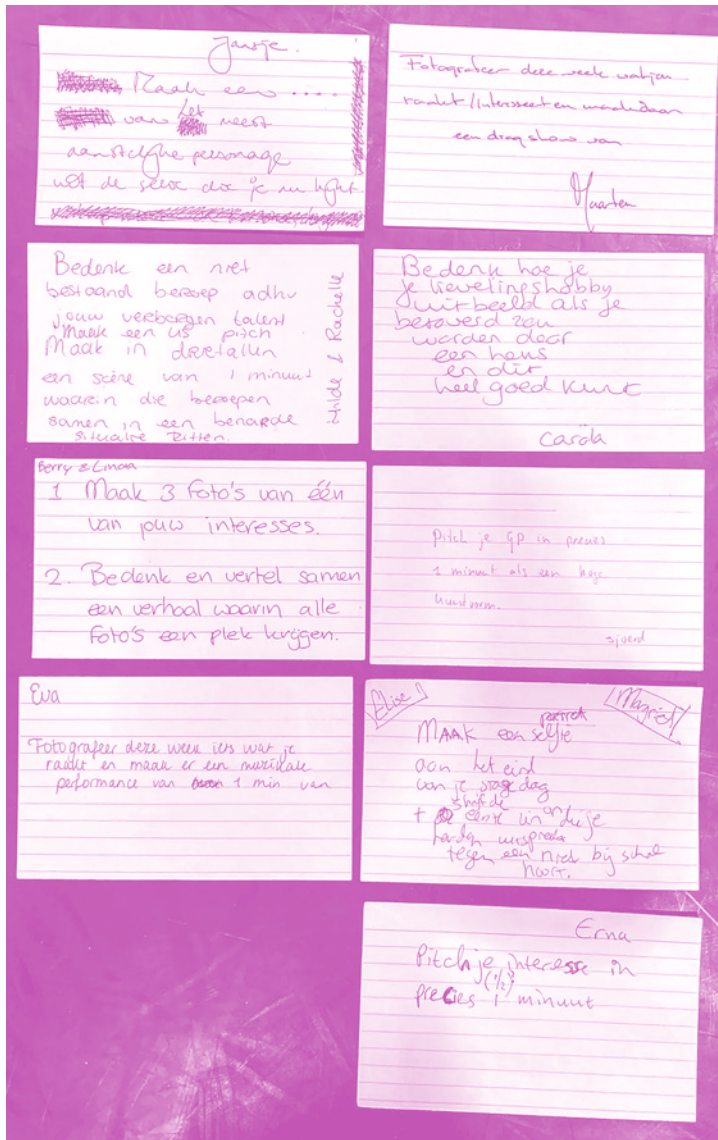 Jantje.
Maak een ....
van het meest
personage
wat de seine die je nu
Fotografeer deze week wat jou
raakt/interesseert en maak daar
een dragshow van
Maarten
Bedenk een niet
bestaand beroep adhv
jouw verborgen talent
Maak een us pitch
Maak in drietallen
een scène van 1 minuut
waarin die beroepen
samen in een benarde
situatie zitten.
Hilde & Rachelle
Bedenk hoe je
je lievelingshobby
uitbeeld als je
betoverd zou
worden door
een heks
en dit
heel goed kunt
Carola
Berry & Linda
1 Maak 3 foto's van één
van jouw interesses.
2. Bedenk en vertel samen
een verhaal waarin alle
foto's een plek krijgen.
Pitch je GP in precies
1 minuut als een hoge
kunstvorm.
sjoerd
Eva
Fotografeer deze week iets wat je
raakt en maak er een muzikale
performance van 1 min van
Elise!
Magriet
portret
MAAK een selfie
aan het eind
van je stage dag
+ schrijf de
eerste zin die je
tegen een niet bij school
hoort.
Erna
Pitch je interesse in
(1/2)
precies 1 minuut